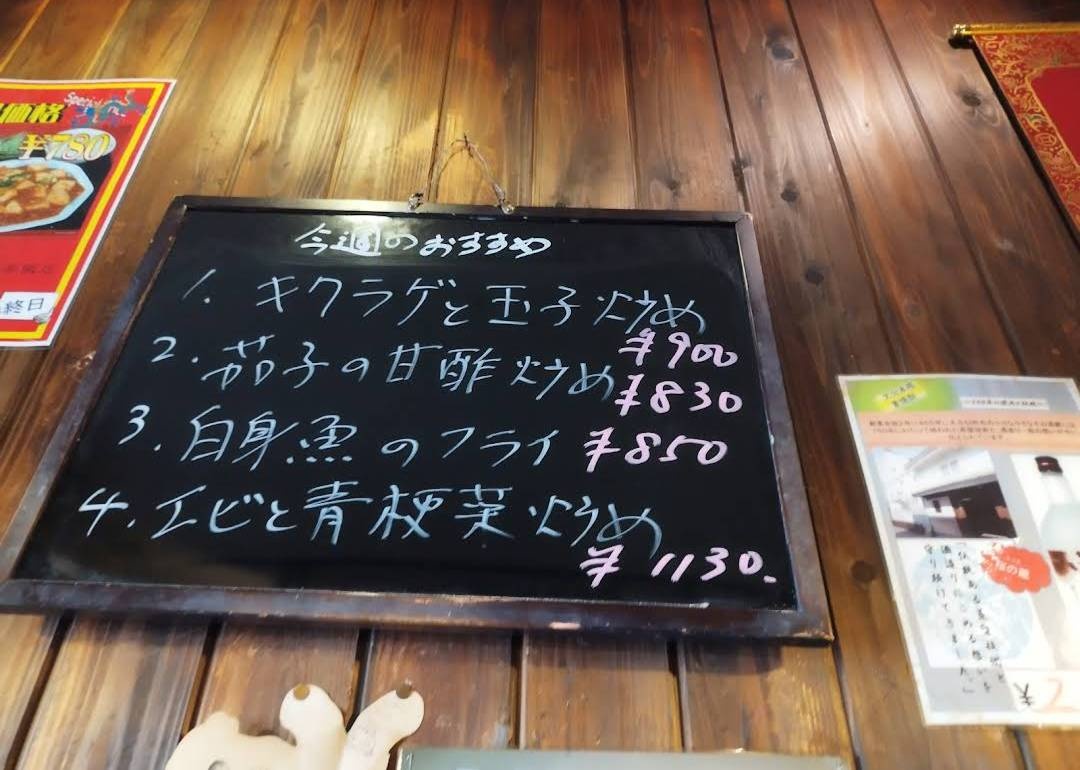 価格
Special
¥780
終日
今週のおすすめ
1. キクラゲと玉子炒め
¥900
2. 茄子の甘酢炒め ¥830
3. 白身魚のフライ ¥850
4. エビと青梗菜炒め
¥1130.
「伝統ある
酒造りに
守り続けてきました。」
¥2